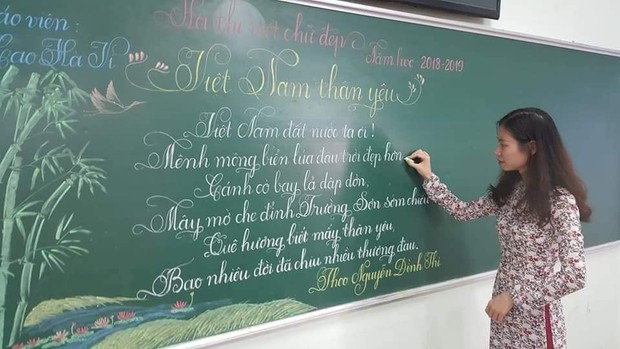 áo viên:
Cao Hà
Hội thi viết chữ đẹp
Năm học 2018-2019
Việt Nam thân yêu
Việt Nam đất nước ta ơi !
Mênh mông biển lúa đâu trời đẹp hơn
Cánh cò bay lả dập dờn,
Mây mờ che đỉnh Trường Sơn sớm chiều
Quê hương biết mấy thân yêu,
Bao nhiêu đời đã chịu nhiều thương đau.
Theo Nguyễn Đình Thi